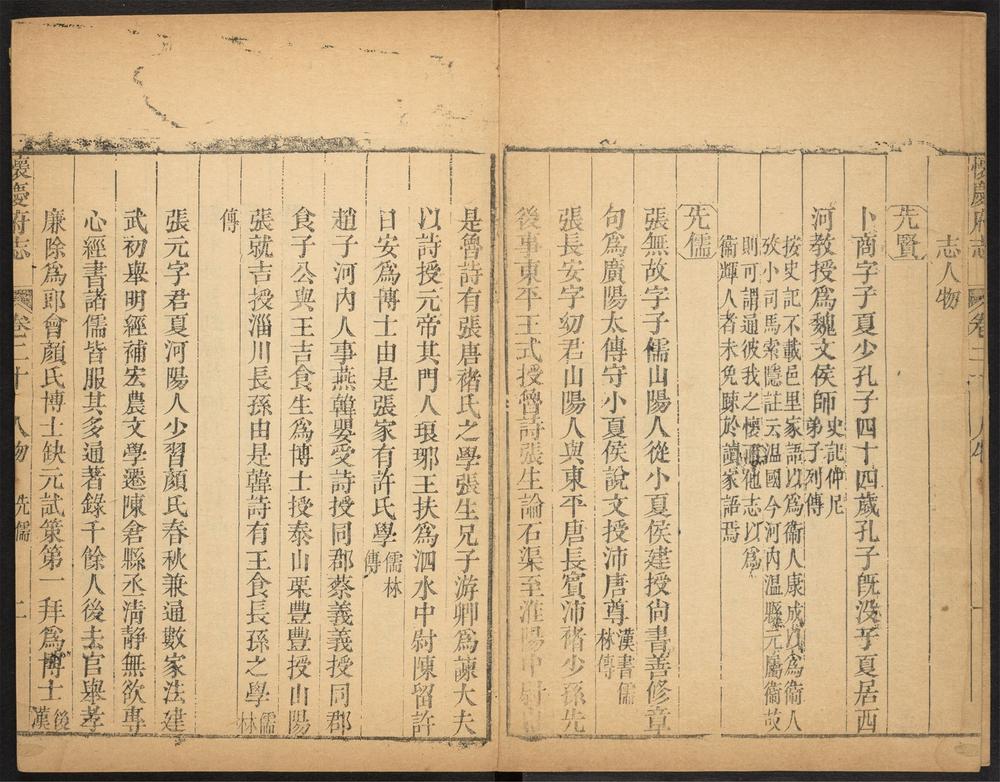 懷慶府志 卷二十 人物
志人物
先賢
卜商字子夏少孔子四十四歲孔子旣没子夏居西
河教授爲魏文侯師史記仲尼
弟子列傳
按史記不載邑里家語以爲衞人康成以爲衞人
攷小司馬索隱註云温國今河内温縣元屬衞故
則可謂通彼我之懷他志以爲
衞輝人者未免踈於讀家語焉
先儒
張無故字子儒山陽人從小夏侯建授尙書善修章
句爲廣陽太傅守小夏侯說文授沛唐尊漢書儒
林傳
張長安字幼君山陽人與東平唐長賓沛褚少孫先
後事東平王式授魯詩張生論石渠至淮陽中尉
是魯詩有張唐褚氏之學張生兄子游卿爲諫大夫
以詩授元帝其門人琅琊王扶爲泗水中尉陳留許
日安爲博士由是張家有許氏學儒林
傳
趙子河内人事燕韓嬰受詩授同郡蔡義義授同郡
食子公與王吉食生爲博士授泰山栗豐豐授山陽
張就吉授淄川長孫由是韓詩有王食長孫之學儒
林
傳
張元字君夏河陽人少習顔氏春秋兼通數家法建
武初舉明經補宏農文學遷陳倉縣丞清靜無欲專
心經書諸儒皆服其多通著錄千餘人後去官舉孝
廉除爲郎會顔氏博士缺元試策第一拜爲博士後
漢
懷慶府志 卷二十 人物 先儒 二